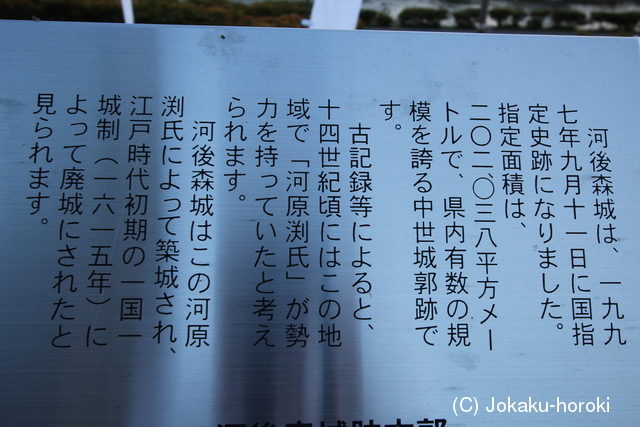 河後森城は、一九九
七年九月十一日に国指
定史跡になりました。
指定面積は、
二〇二、〇三八平方メー
トルで、県内有数の規
模を誇る中世城郭跡で
す。
古記録等によると、
十四世紀頃にはこの地
域で「河原渕氏」が勢
力を持っていたと考え
られます。
河後森城はこの河原
渕氏によって築城され、
江戸時代初期の一国一
城制（一六一五年）に
よって廃城にされたと
見られます。
(C) Jokaku-horoki